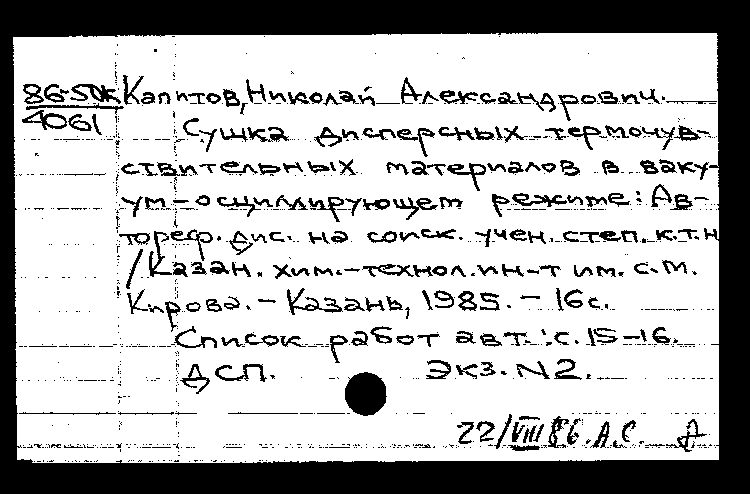 86-50к Капитов, Николай Александрович.
4061
Сушка дисперсных термочув-
ствительных материалов в ваку-
ум-осциллирующем режиме: Ав-
тореф. дис. на соиск. учен. степ. к.т.н
/Казан. хим.-технол. ин-т им. С.М.
Кирова. - Казань, 1985. - 16с.
Список работ авт.: с. 15-16.
ДСП. Экз. N2.
22/VIII 86. А.С.